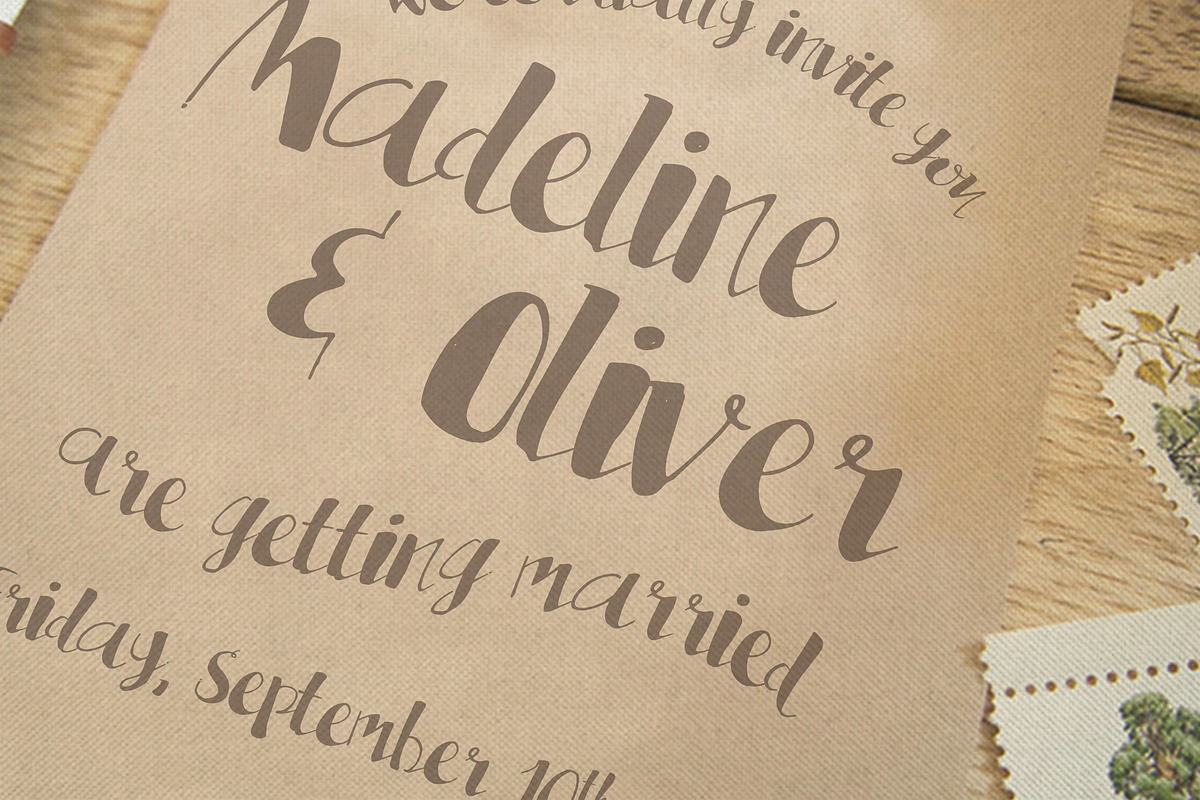 we cordially invite you
Madeline
& Oliver
are getting married
Friday, September 10th